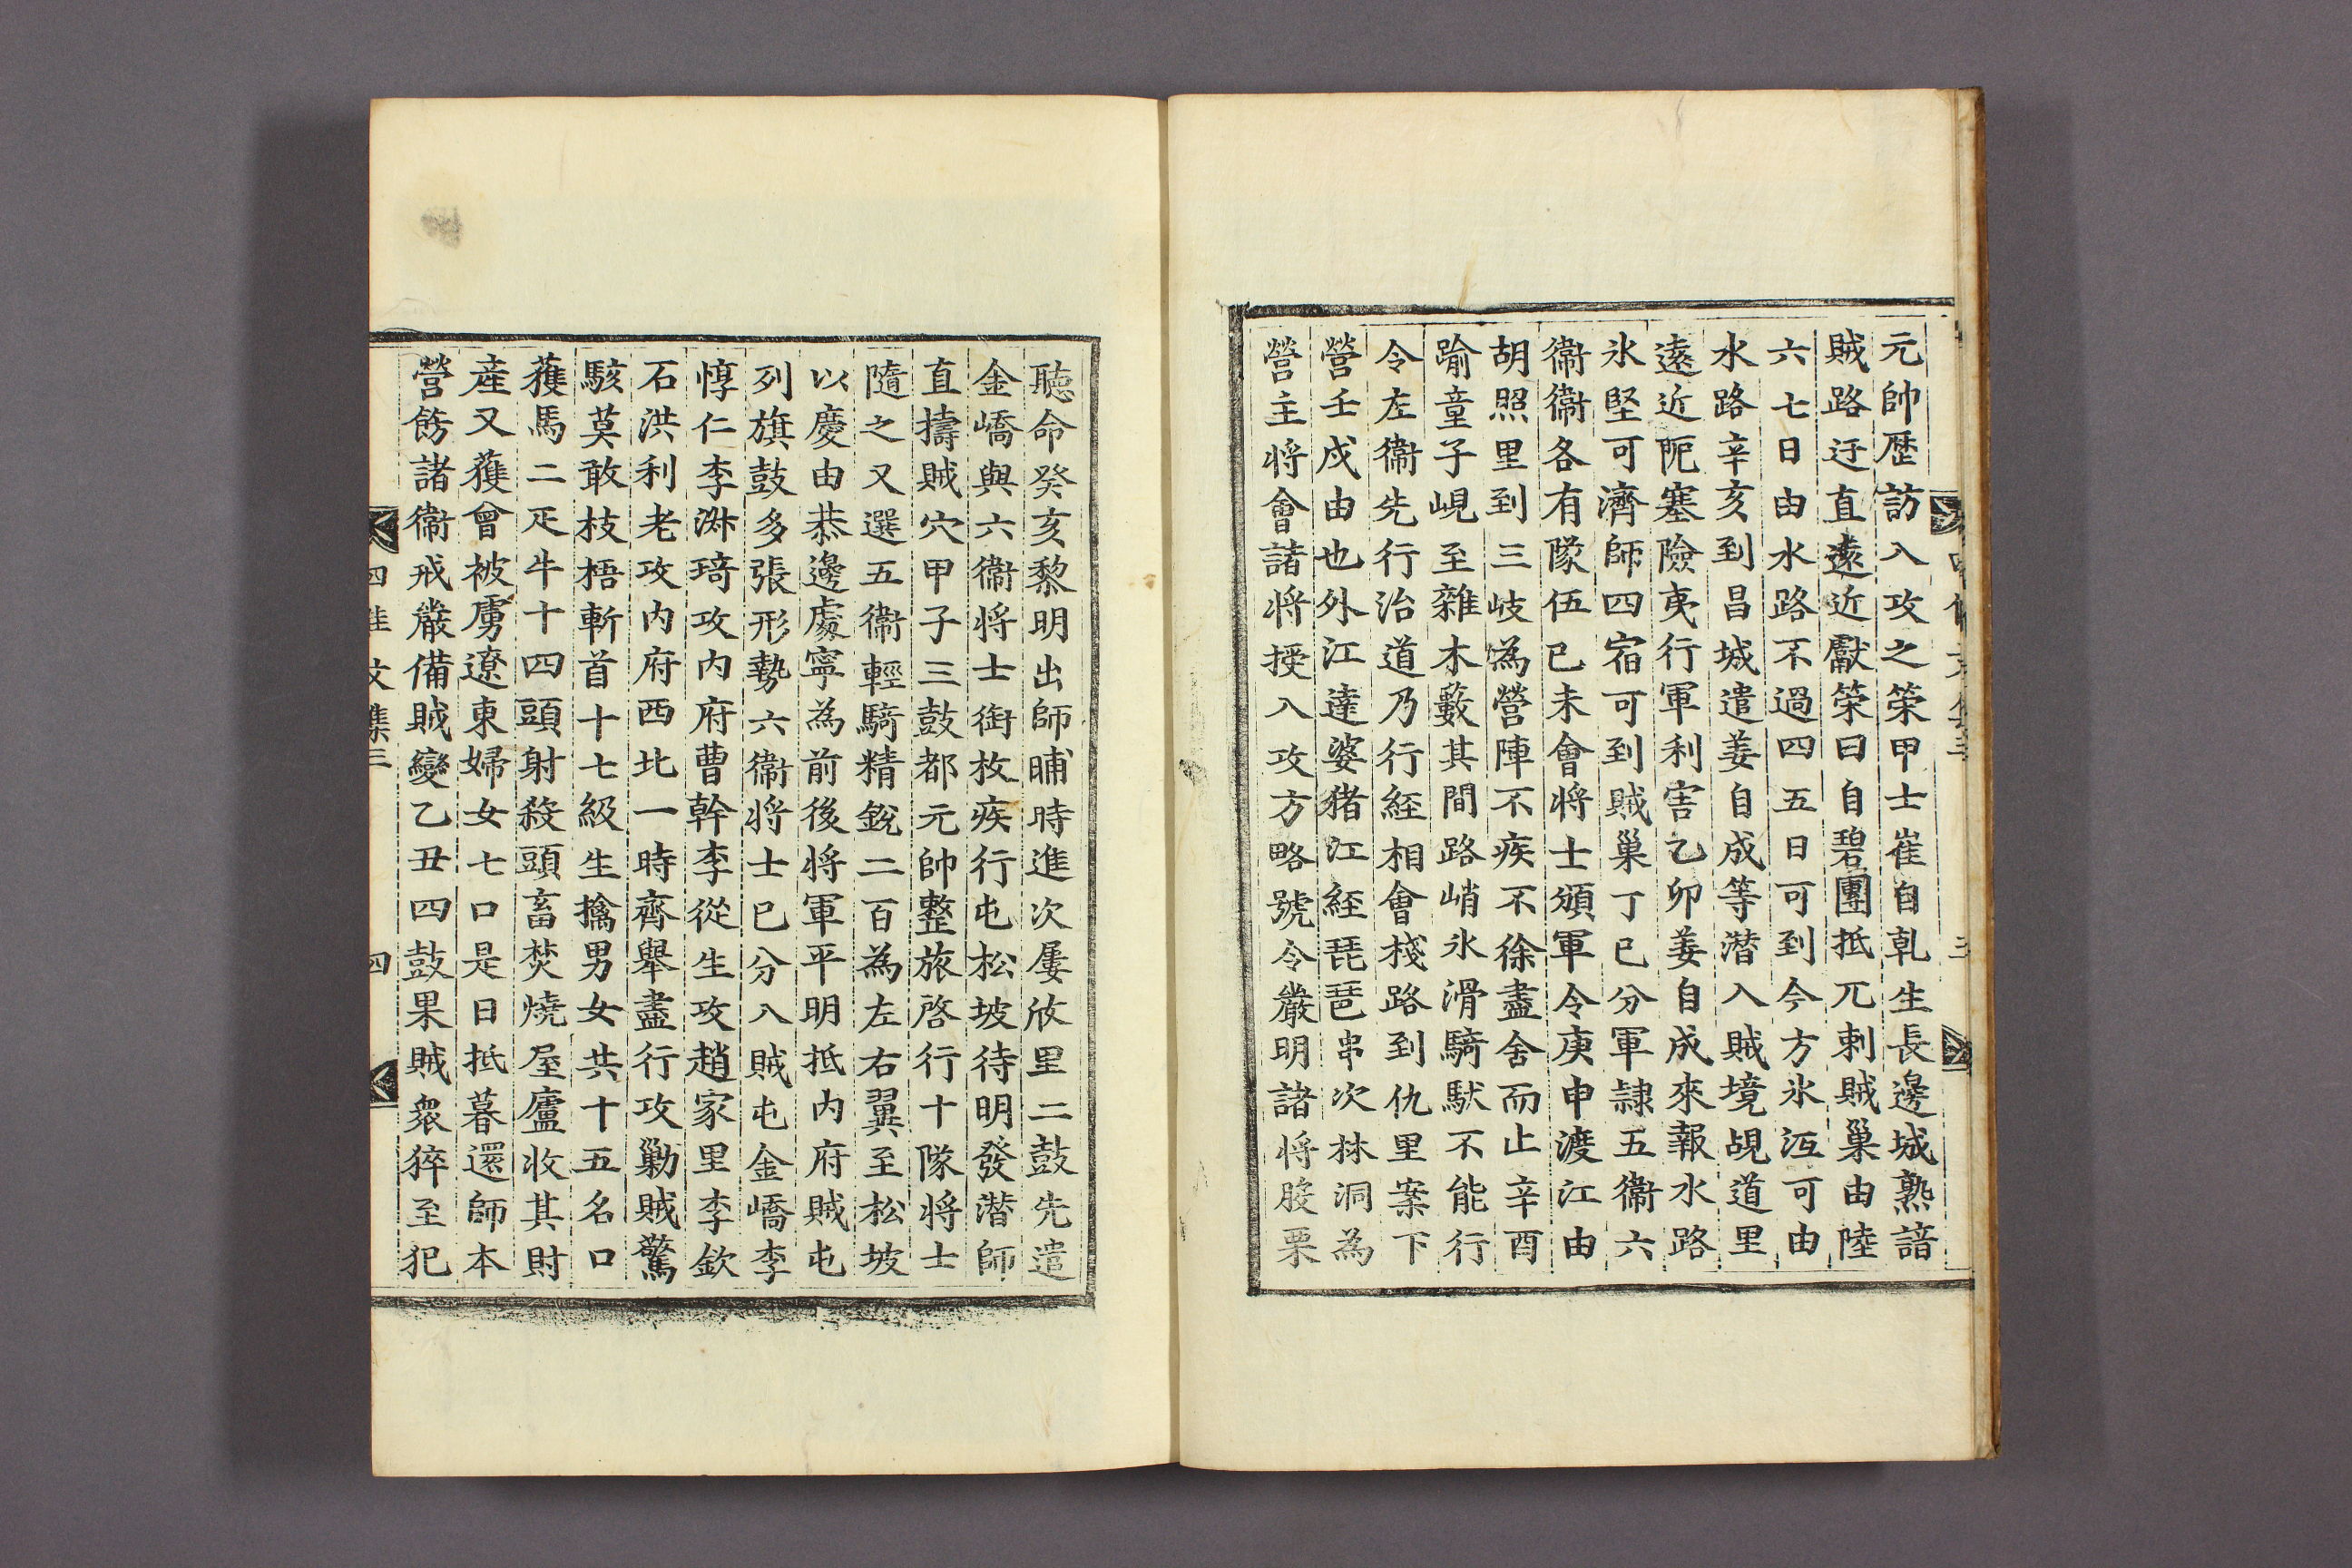 元帥歷訪入攻之策甲士崔自乹生長邊城熟諳
賊路迂直遠近獻策曰自碧團抵兀剌賊巢由陸
六七日由水路不過四五日可到今方氷冱可由
水路辛亥到昌城遣姜自成等潜入賊境覘道里
遠近阨塞險夷行軍利害乙卯姜自成來報水路
氷堅可濟師四宿可到賊巢丁巳分軍隷五衞六
衞衞各有隊伍己未會將士頒軍令庚申渡江由
胡照里到三岐為營陣不疾不徐盡舍而止辛酉
踰童子峴至雜木藪其間路峭氷滑騎馱不能行
令左衞先行治道乃行経相會棧路到仇里案下
營壬戍由也外江達婆猪江経琵琶串次林洞為
營主将會諸将授入攻方略號令嚴明諸将股栗
聽命癸亥黎明出師晡時進次屢攸里二鼓先遣
金嶠與六衞将士銜枚疾行屯松坡待明發潜師
直擣賊穴甲子三鼓都元帥整旅啓行十隊将士
隨之又選五衞輕騎精銳二百為左右翼至松坡
以慶由恭邊處寧為前後将軍平明抵内府賊屯
列旗鼓多張形勢六衞将士已分入賊屯金嶠李
惇仁李淋琦攻内府曹幹李從生攻趙家里李欽
石洪利老攻内府西北一時齊舉盡行攻勦賊驚
駭莫敢枝梧斬首十七級生擒男女共十五名口
獲馬二疋牛十四頭射殺頭畜焚燒屋廬收其財
產又獲曾被虜遼東婦女七口是日抵暮還師本
營飭諸衞戒嚴備賊變乙丑四鼓果賊衆猝至犯
四佳文集三 四